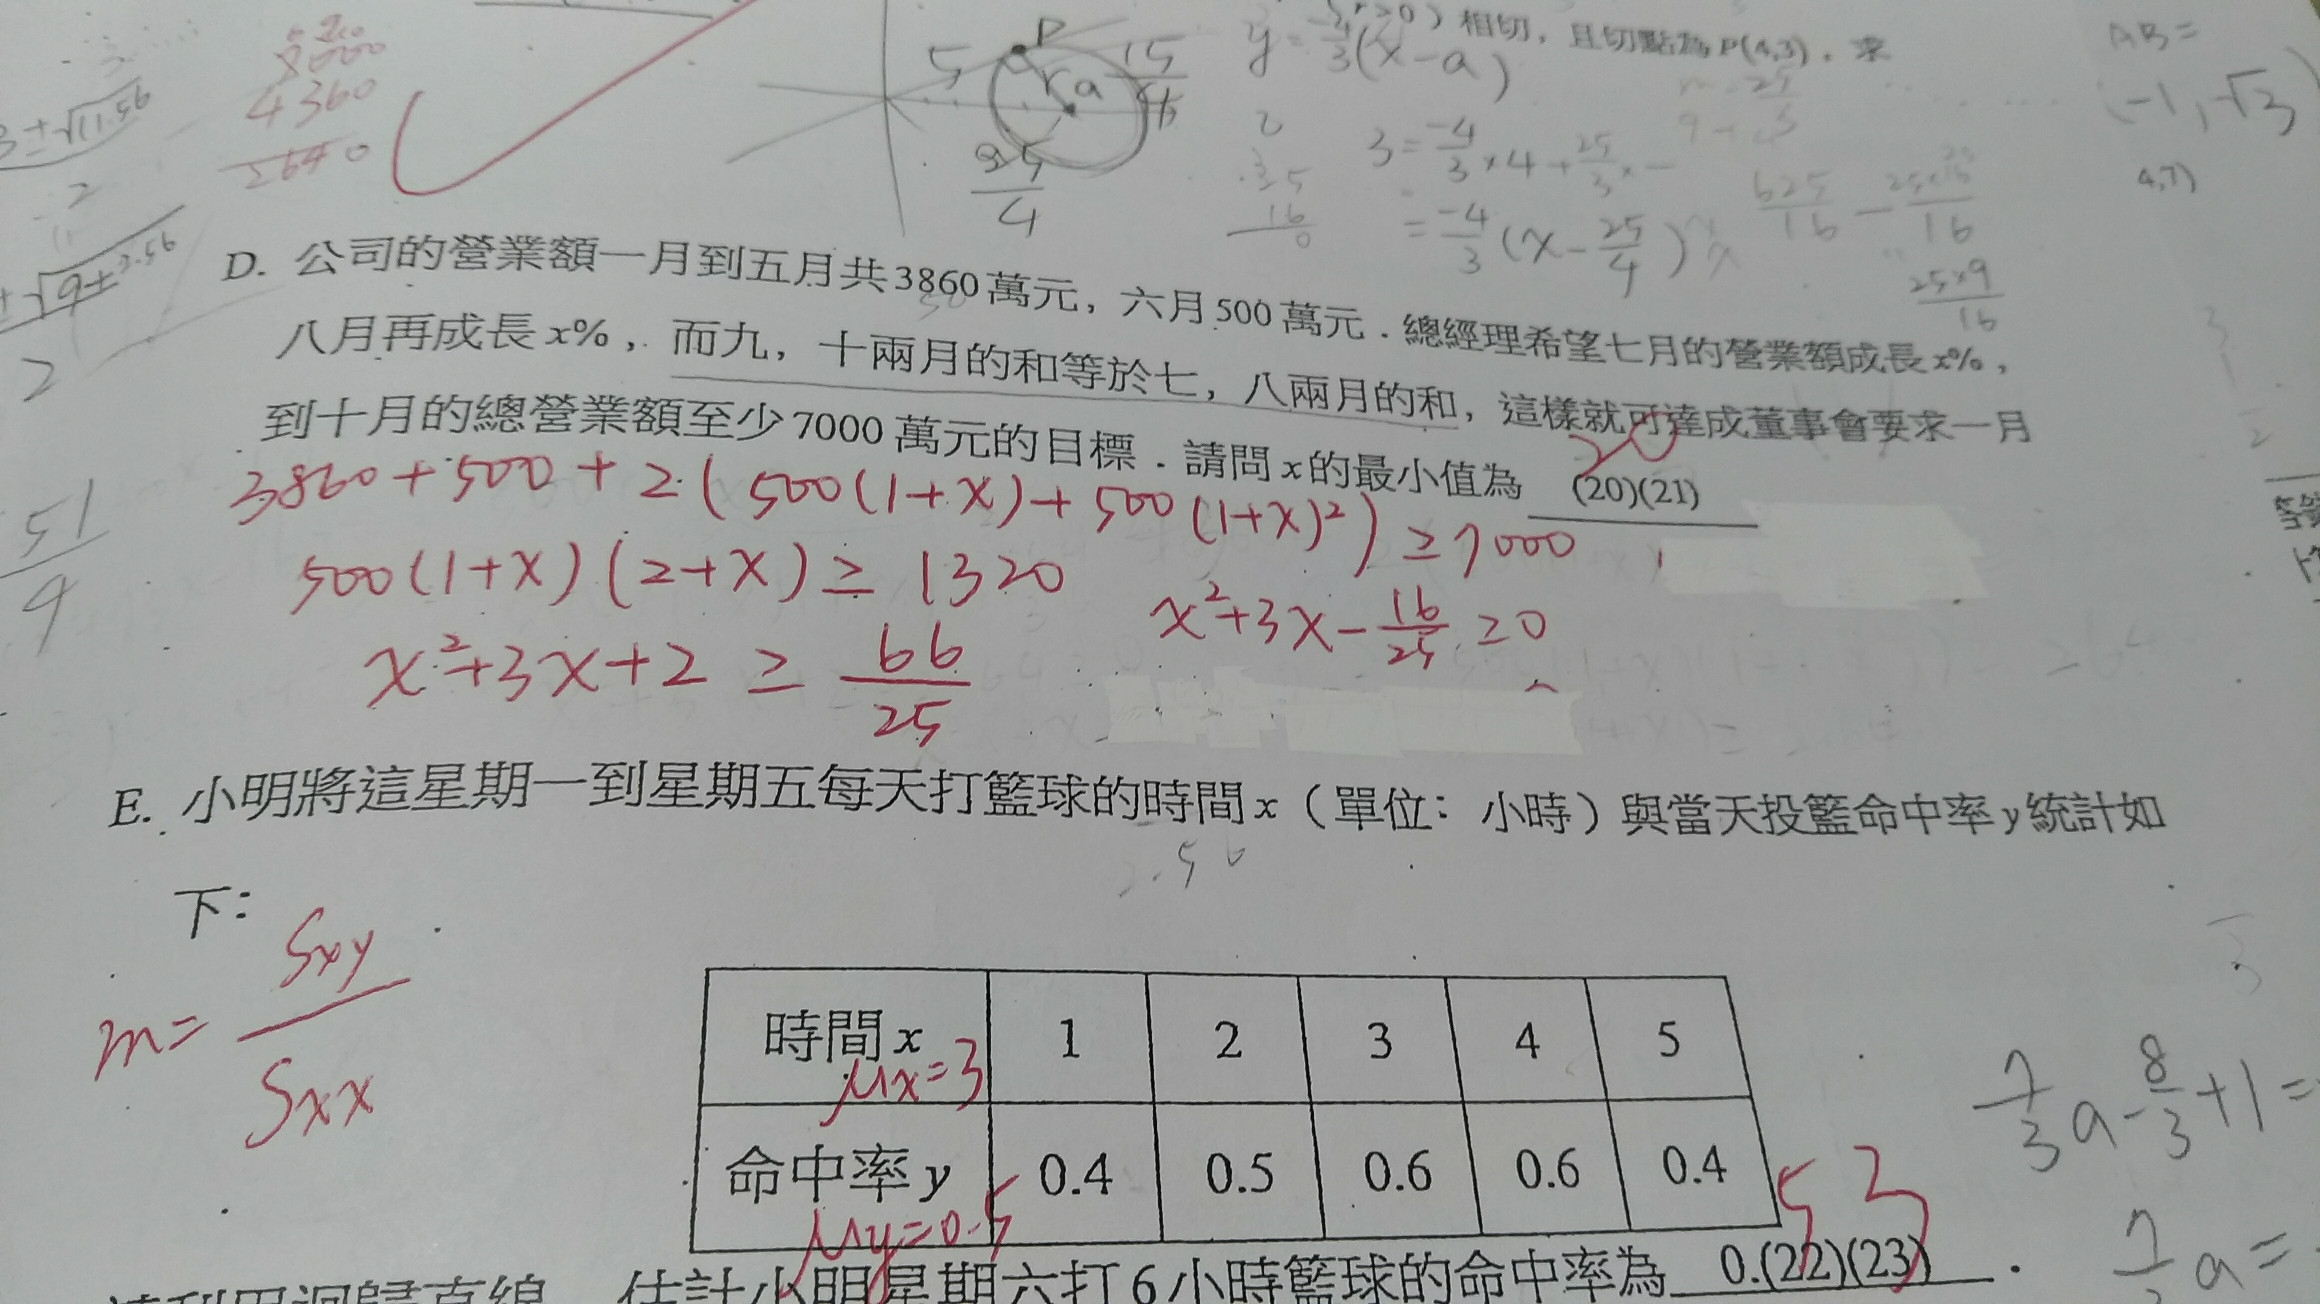 相切，且切點為P(4,3)．求
y=-4/3(x-a)
AB=
(-1, √3)
3±√11.56
2
8000
4360
2640
5
P
r
a
15/4
25/4
3=-4/3×4+25/3
=-4/3(x-25/4)
625/16 - 25×16/16
25×9/16
4,7)
±√9+2.56
2
D. 公司的營業額一月到五月共3860萬元，六月500萬元．總經理希望七月的營業額成長x%，
八月再成長x%，而九，十兩月的和等於七，八兩月的和，這樣就可達成董事會要求一月
到十月的總營業額至少7000萬元的目標．請問x的最小值為 (20)(21)
20
3860+500+2(500(1+x)+500(1+x)²)≥7000
500(1+x)(2+x)≥1320
x²+3x-16/25≥0
x²+3x+2≥66/25
51/9
E. 小明將這星期一到星期五每天打籃球的時間x（單位：小時）與當天投籃命中率y統計如
下：
2.56
m=Sxy/Sxx
時間x 1 2 3 4 5
μx=3
命中率y 0.4 0.5 0.6 0.6 0.4
μy=0.5
53
7/3a-8/3+1=
估計小明星期六打6小時籃球的命中率為 0.(22)(23)．